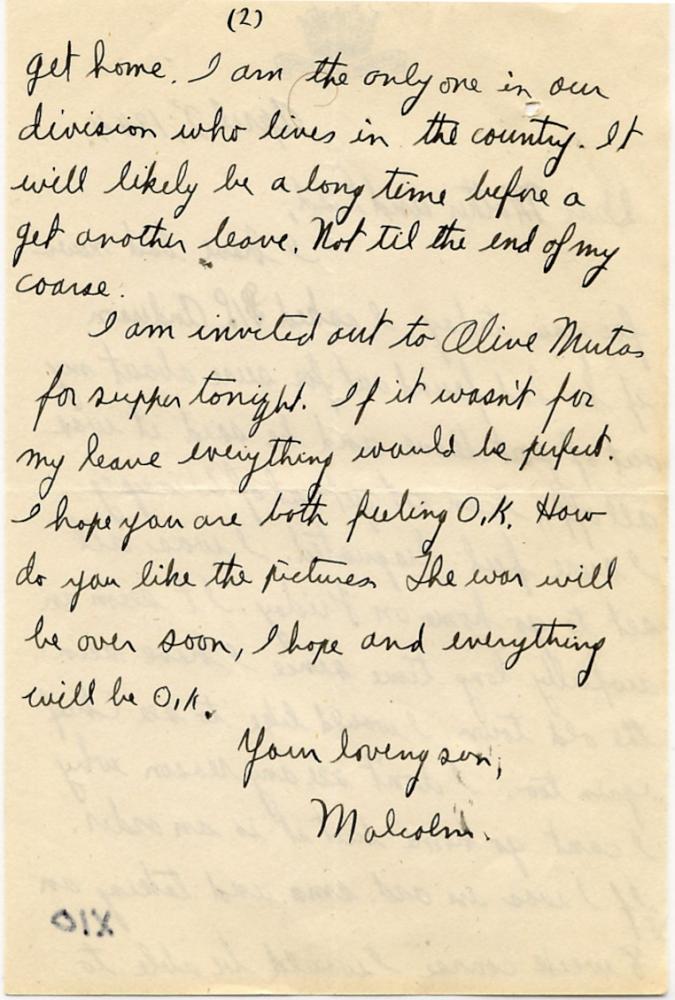 (2)
get home. I am the only one in our
division who lives in the country. It
will likely be a long time before a
get another leave. Not til the end of my
coarse.
I am invited out to Olive Mutas
for supper tonight. If it wasn't for
my leave everything would be perfect.
I hope you are both feeling O.K. How
do you like the pictures. The war will
be over soon, I hope and everything
will be O.K.
Your loving son,
Malcolm.